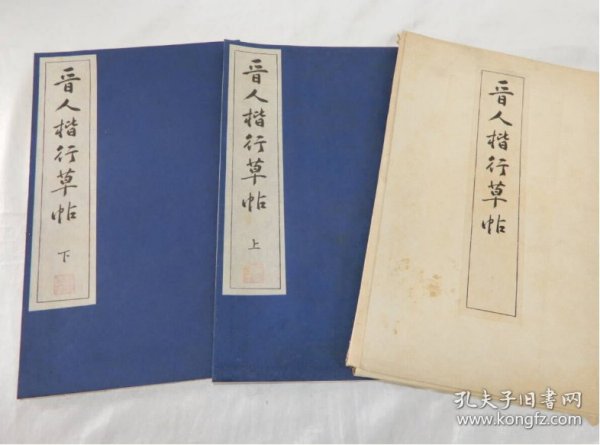 晋人楷行草帖
下
晋人楷行草帖
上
晋人楷行草帖
孔夫子旧書网
www.kongfz.com